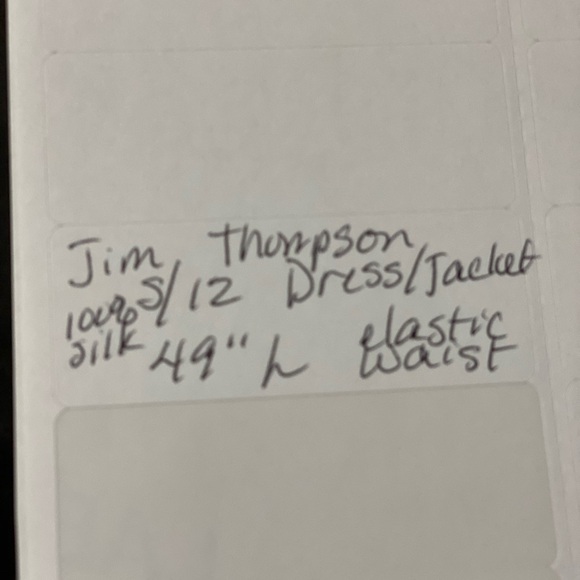 Jim Thompson
100% S/12 Dress/Jacket
silk 49" L elastic
waist